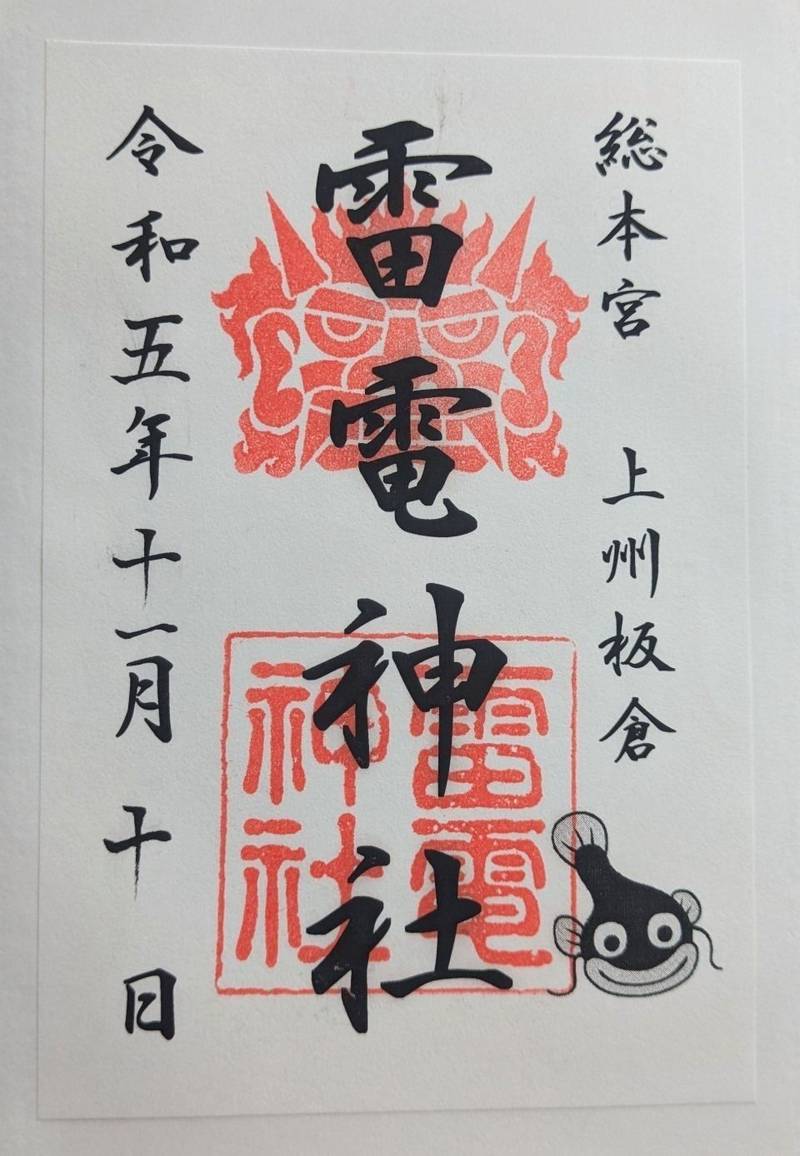 総本宮 上州板倉
雷電神社
雷電
神社
令和五年十一月十日